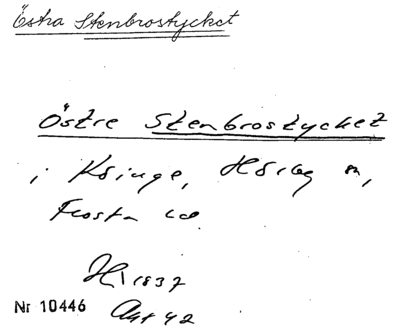 Östra Stenbrostycket
Östre Stenbrostycket
i Ksinge, Hörby sn,
Frosta hd
H 1837
Nr 10446 Akt 42